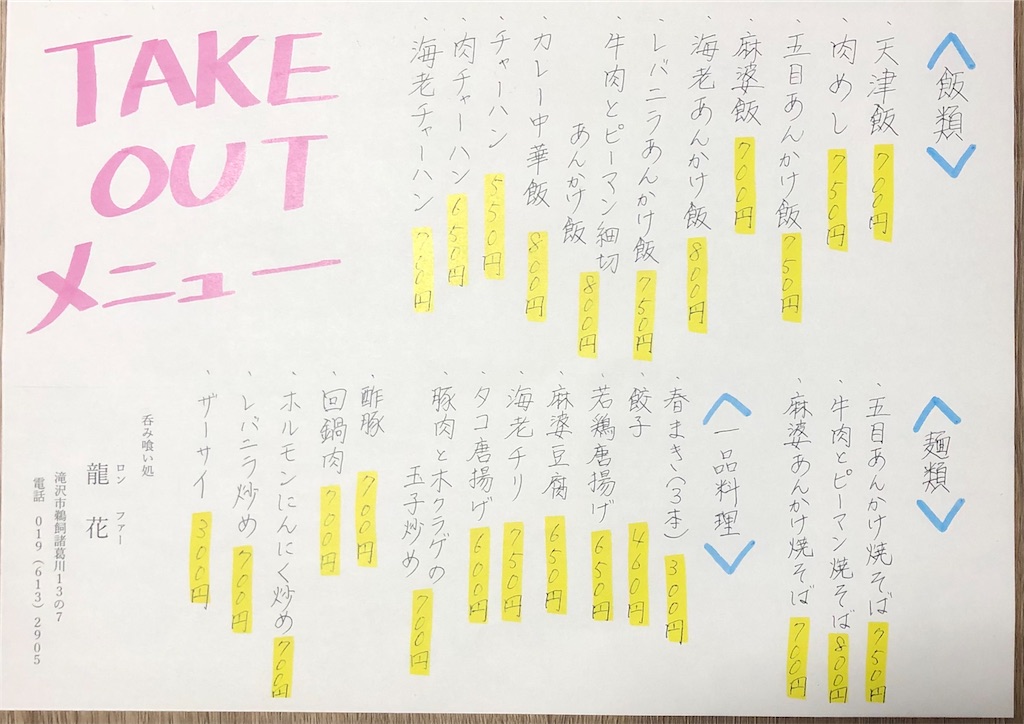 TAKE
OUT
メニュー
〈飯類〉
・天津飯 700円
・肉めし 750円
・五目あんかけ飯 750円
・麻婆飯 700円
・海老あんかけ飯 800円
・レバニラあんかけ飯 750円
・牛肉とピーマン細切
あんかけ飯 800円
・カレー中華飯 800円
・チャーハン 550円
・肉チャーハン 650円
・海老チャーハン 700円
〈麺類〉
・五目あんかけ焼そば 750円
・牛肉とピーマン焼そば 800円
・麻婆あんかけ焼そば 700円
〈一品料理〉
・春まき(3本) 300円
・餃子 400円
・若鶏唐揚げ 650円
・麻婆豆腐 650円
・海老チリ 750円
・タコ唐揚げ 600円
・豚肉と木クラゲの
玉子炒め 700円
・酢豚 700円
・回鍋肉 700円
・ホルモンにんにく炒め 700円
・レバニラ炒め 700円
・ザーサイ 300円
呑み喰い処
龍花
ロン ファー
滝沢市鵜飼諸葛川13の7
電話 019(613)2905